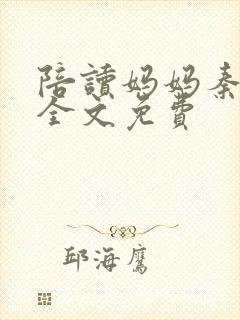 陪讀媽媽秦
全文免費
邱海鷹